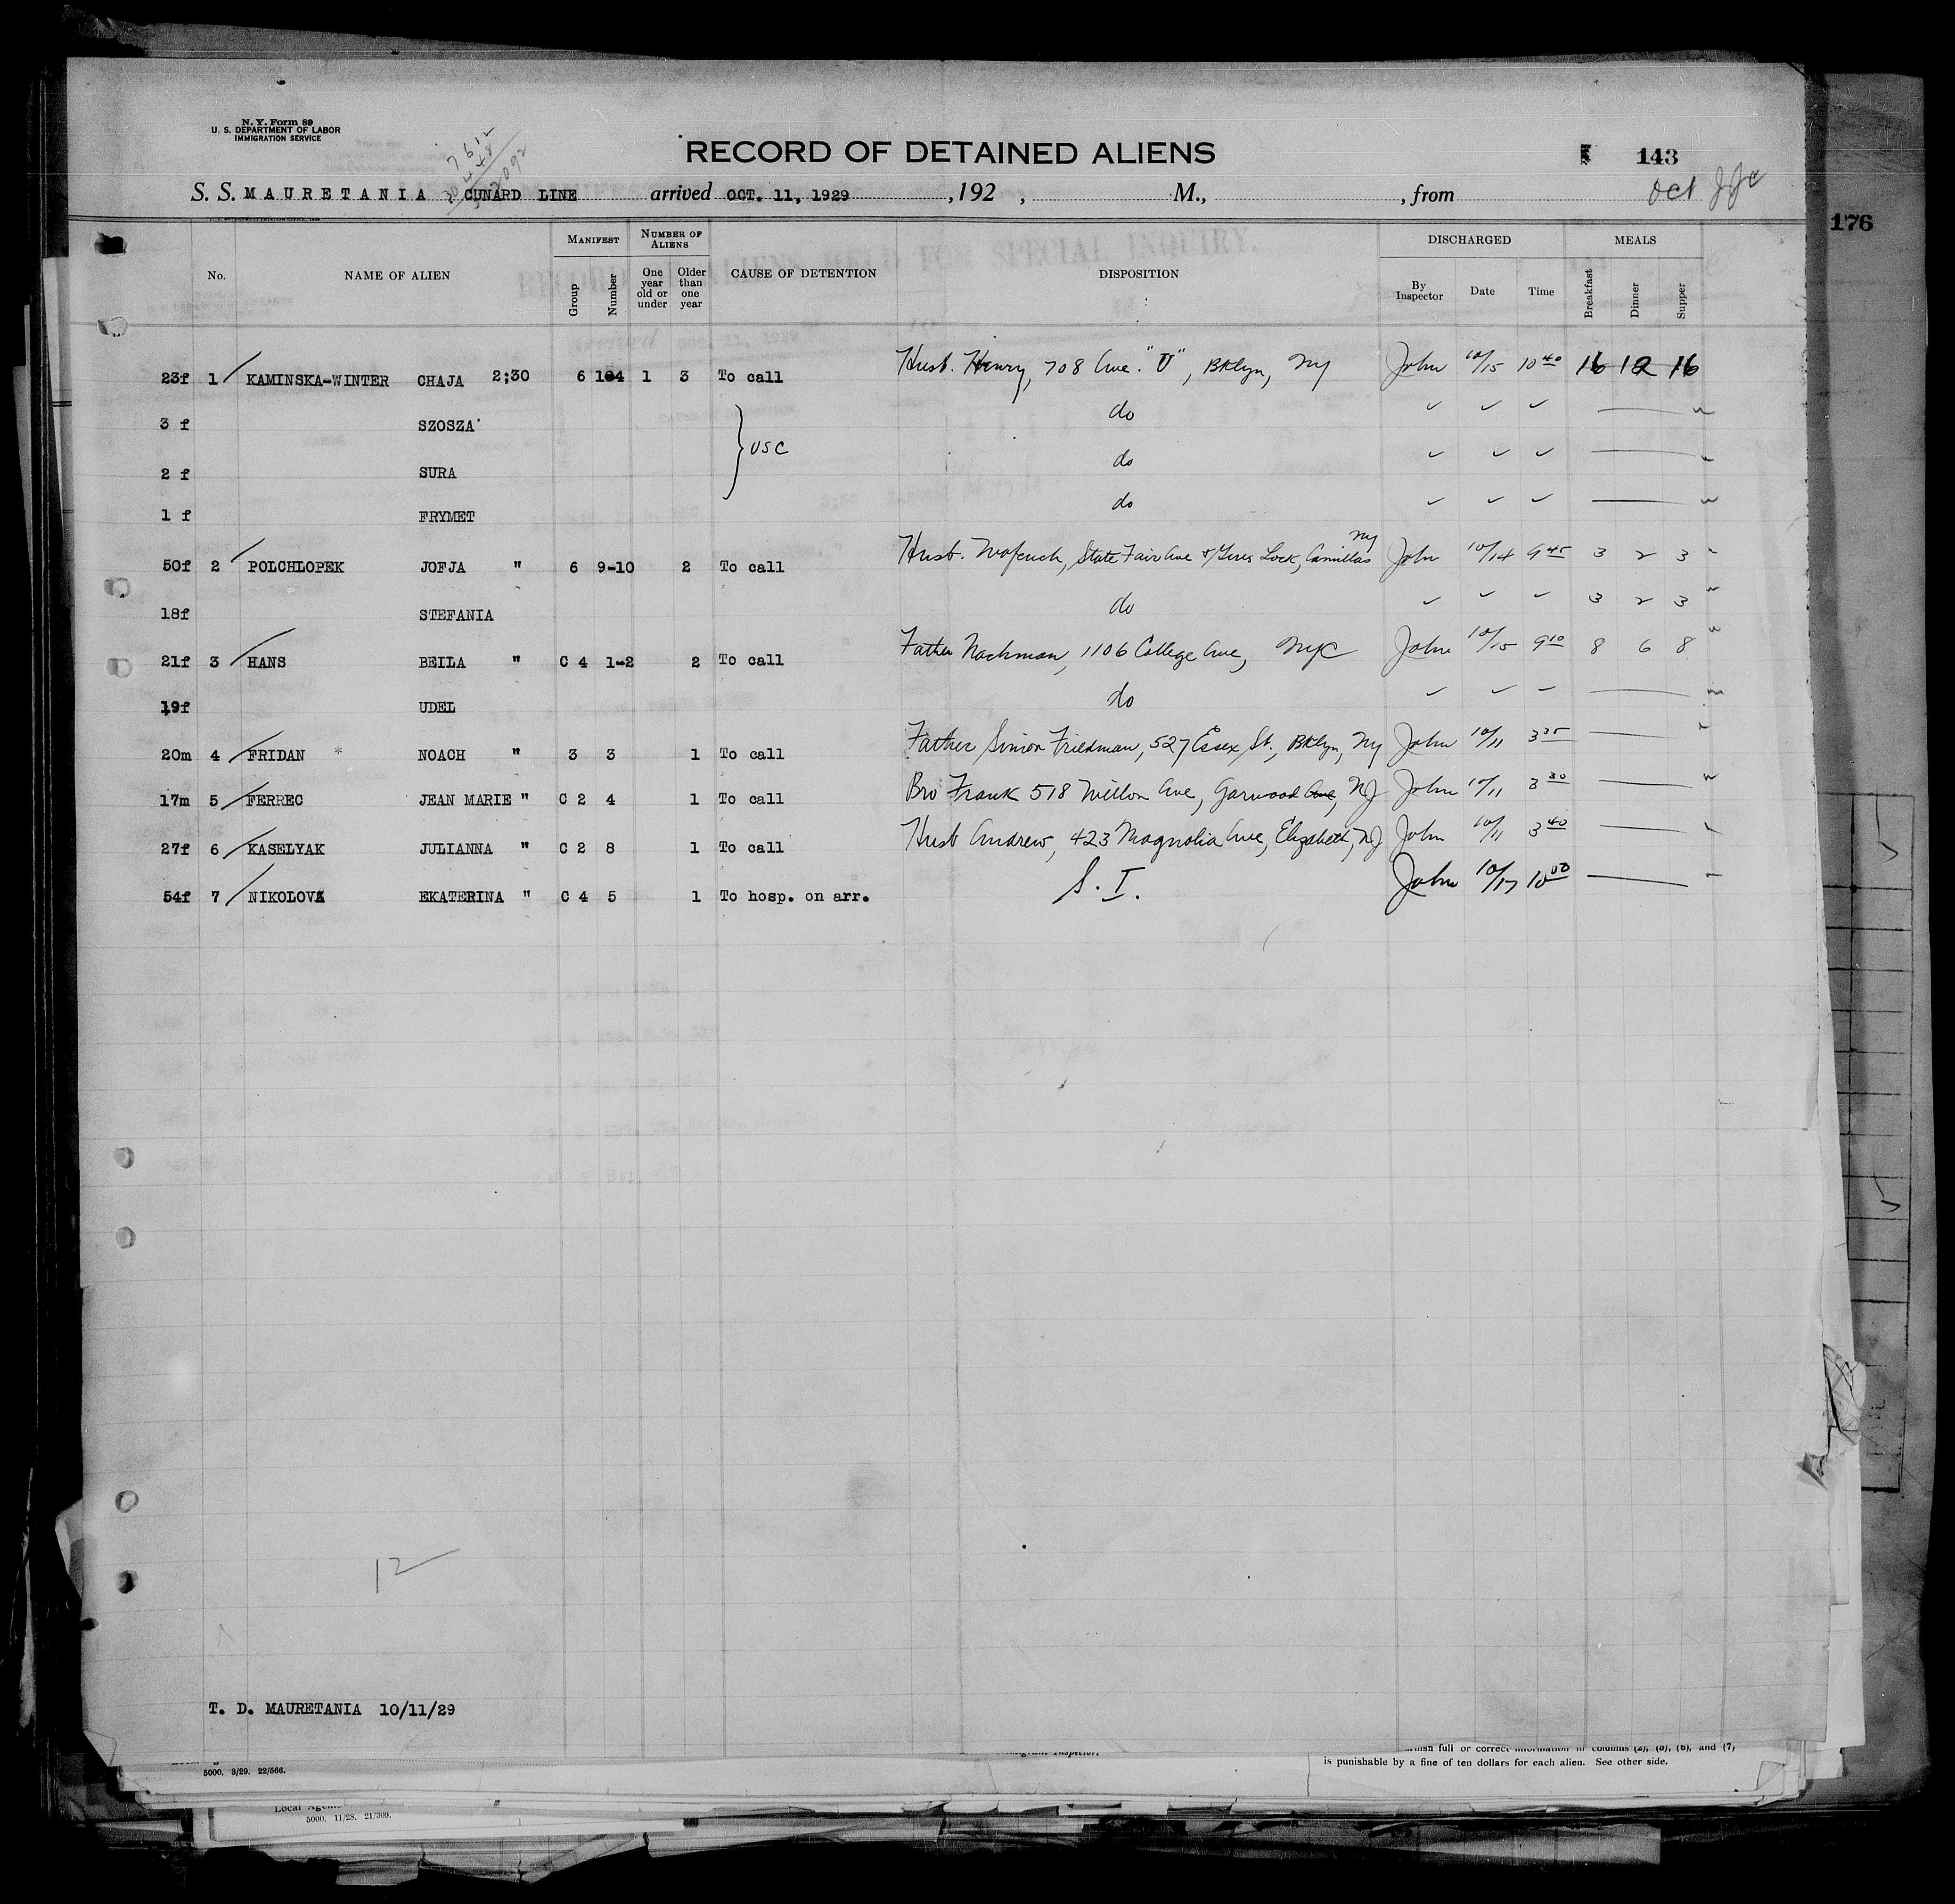 N. Y. Form 89
U. S. DEPARTMENT OF LABOR
IMMIGRATION SERVICE
RECORD OF DETAINED ALIENS
143
S. S. MAURETANIA CUNARD LINE arrived OCT. 11, 1929 , 192 , M., , from Oct
176
No. NAME OF ALIEN MANIFEST Group Number NUMBER OF ALIENS One year old or under Older than one year CAUSE OF DETENTION DISPOSITION DISCHARGED By Inspector Date Time MEALS Breakfast Dinner Supper
23f 1 KAMINSKA-WINTER CHAJA 2;30 6 1 3 To call Husb. Henry, 708 Ave. "U", Bklyn, NY John 10/15 10 40 16 12 16
3 f SZOSZA do
USC
2 f SURA do
1 f FRYMET do
50f 2 POLCHLOPEK JOFJA " 6 9-10 2 To call Husb. State Fair Ave & Lock, Camillas NY John 10/14 9 45 3 2 3
18f STEFANIA do 3 2 3
21f 3 HANS BEILA " C 4 1-2 2 To call Father Nachman, 1106 College Ave, NYC John 10/15 9 10 8 6 8
19f UDEL do
20m 4 FRIDAN * NOACH " 3 3 1 To call Father Simon Friedman, 527 Essex St, Bklyn, NY John 10/11 3 35
17m 5 FERREC JEAN MARIE " C 2 4 1 To call Bro Frank 518 Ave, Garwood Ave, NJ John 10/11 3 30
27f 6 KASELYAK JULIANNA " C 2 8 1 To call Husb Andrew, 423 Magnolia Ave, Elizabeth, NJ John 10/11 3 40
54f 7 NIKOLOVA EKATERINA " C 4 5 1 To hosp. on arr. S. I. John 10/17 10 00
12
T. D. MAURETANIA 10/11/29
full or correct information in columns (2), (5), (6), and (7)
is punishable by a fine of ten dollars for each alien. See other side.
5000. 3/29. 22/566.
Local
5000. 11/28. 21/300.